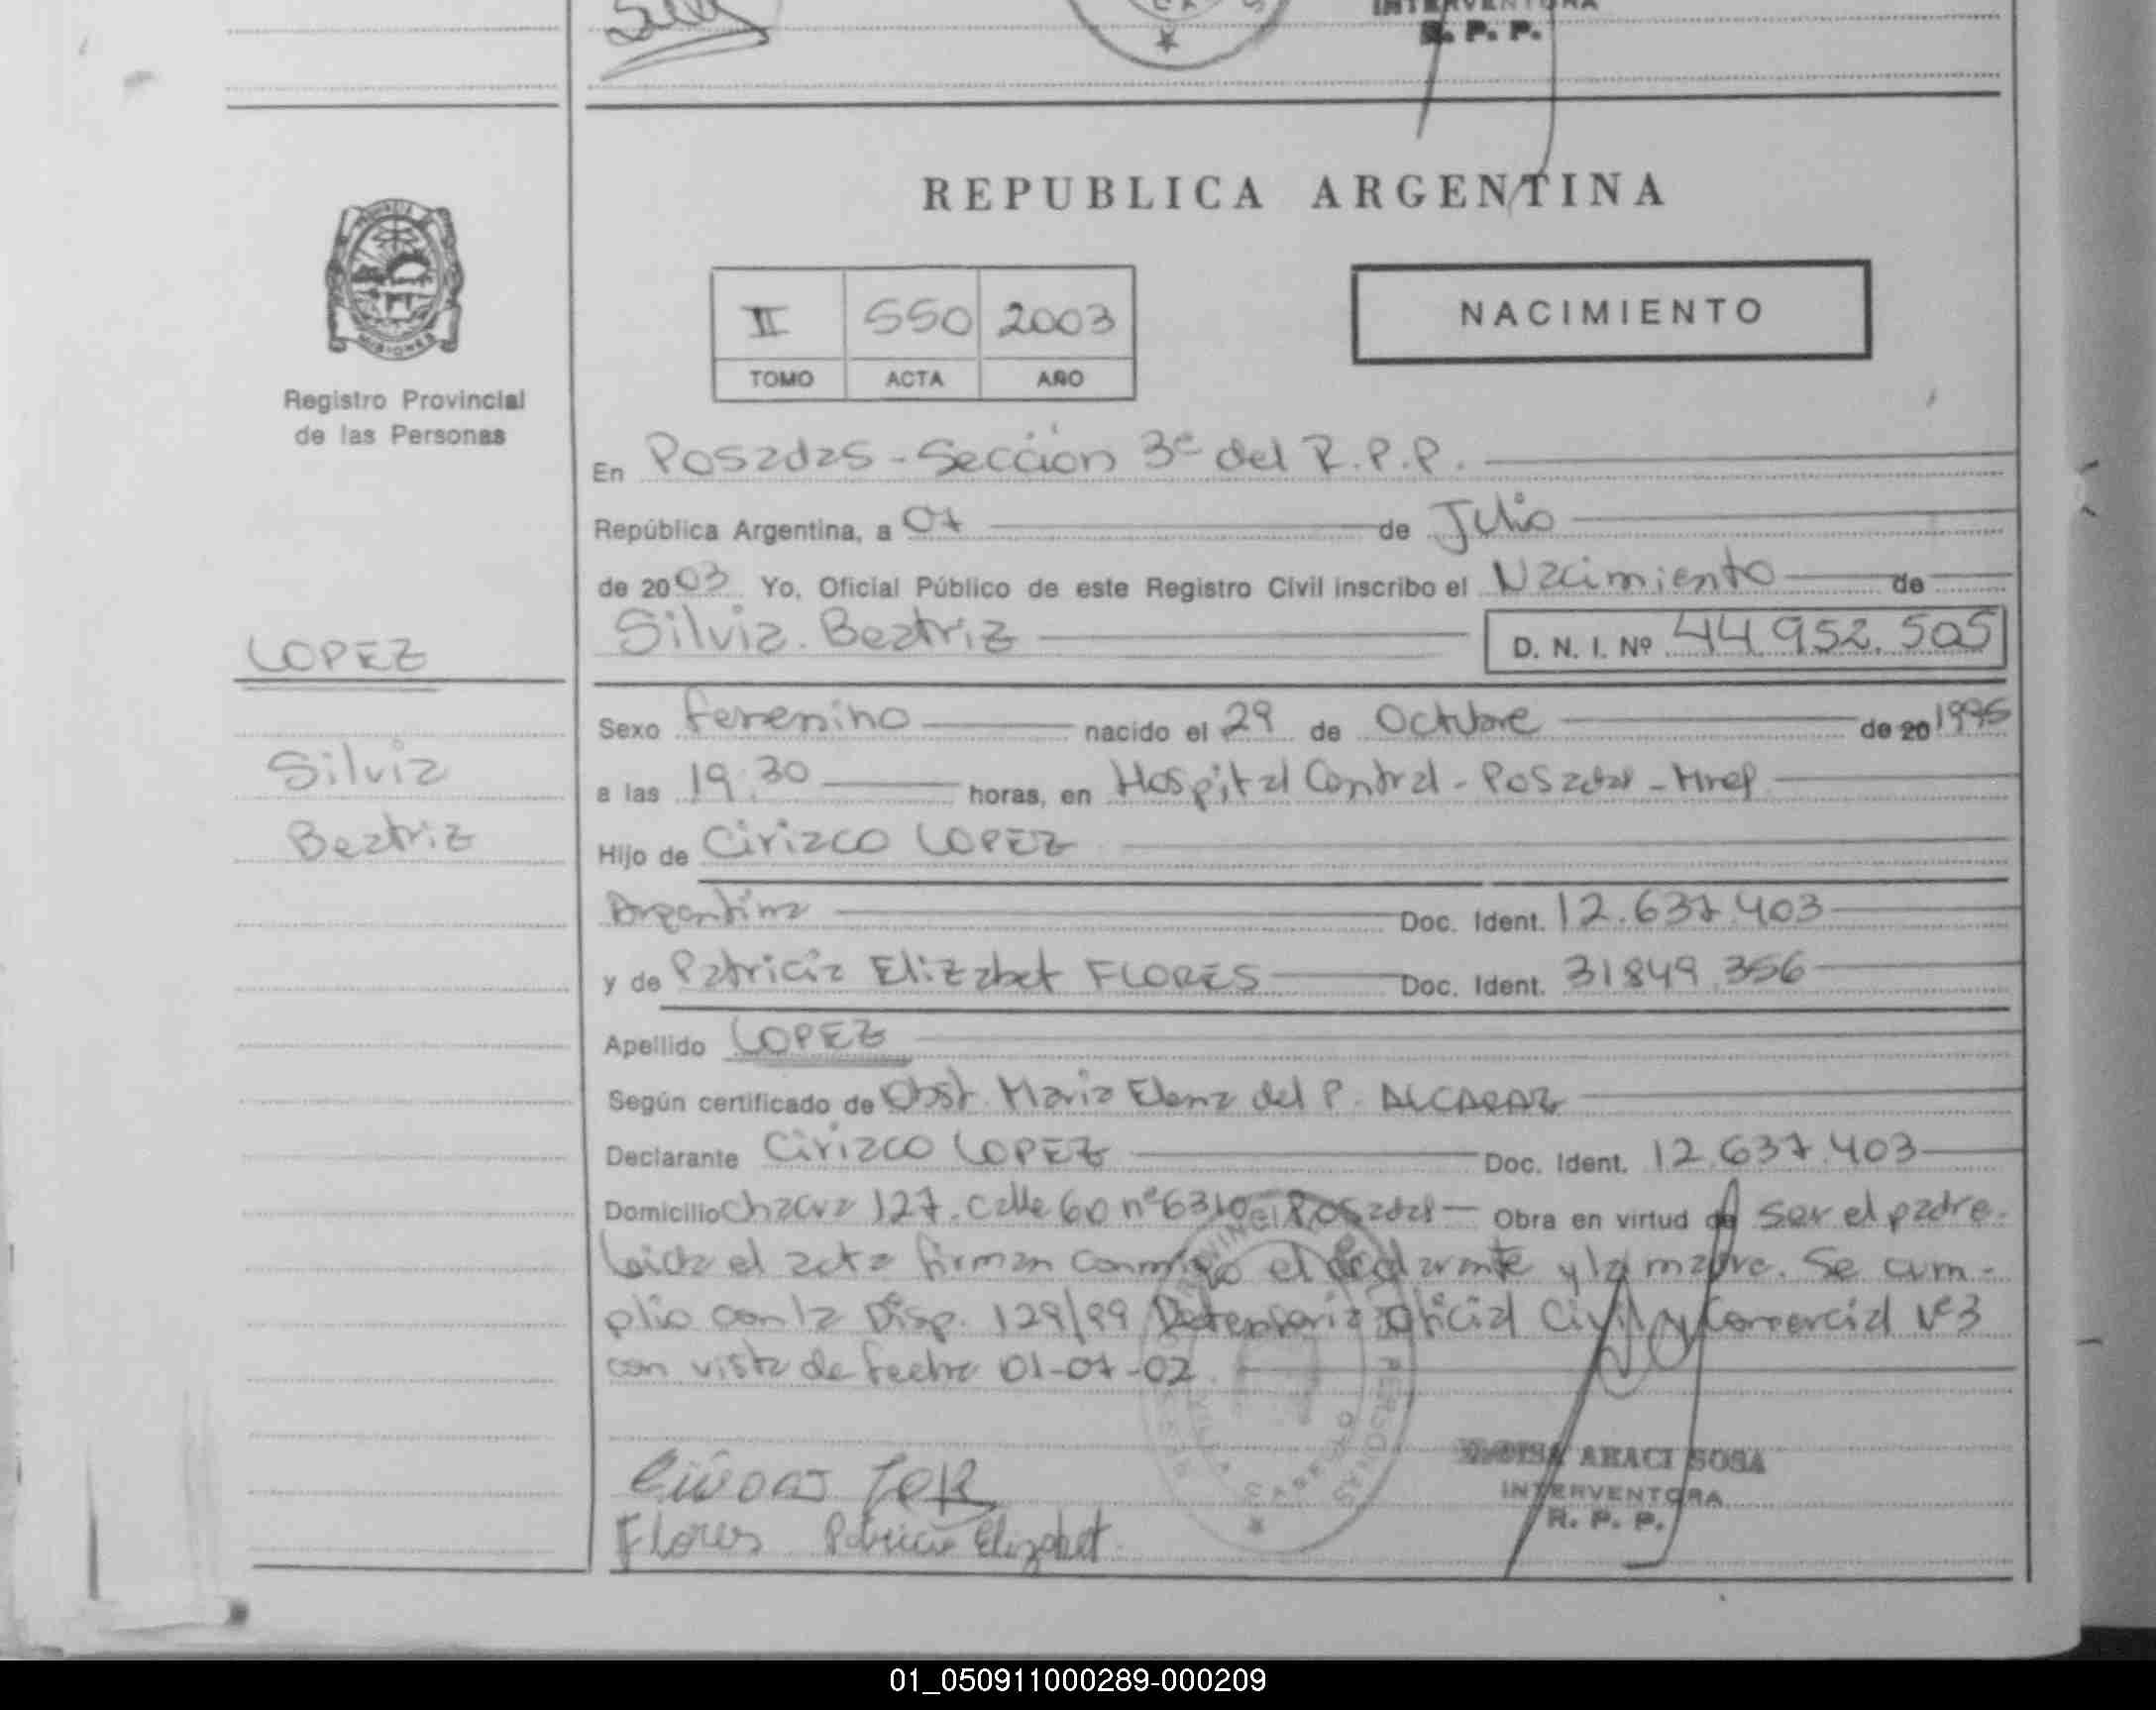 INTERVENTORA
R. P. P.
REPUBLICA ARGENTINA
II 550 2003
TOMO ACTA AÑO
NACIMIENTO
PROVINCIA
MISIONES
Registro Provincial
de las Personas
LOPEZ
Silvia
Beatriz
En Posadas - Sección 3ª del R.P.P.
República Argentina, a 07 de Julio
de 2003 Yo, Oficial Público de este Registro Civil inscribo el Nacimiento de
Silvia Beatriz D. N. I. Nº 44 952.505
Sexo femenino nacido el 29 de Octubre de 20 1995
a las 19:30 horas, en Hospital Central - Posadas -
Hijo de Ciriaco LOPEZ
Argentina Doc. Ident. 12.637.403
y de Patricia Elizabet FLORES Doc. Ident. 31849.356
Apellido LOPEZ
Según certificado de Obst. Maria Elena del P. ALCARAZ
Declarante Ciriaco LOPEZ Doc. Ident. 12.637.403
Domicilio Chacra 127. calle 60 nº 6310 Posadas Obra en virtud de ser el padre.
Leida el acta firman conmigo el declarante y la madre. Se cum-
plio con la Disp. 129/99 Defensoria Oficial Civil y Comercial Nº3
con vista de fecha 01-07-02.
Flores Patricia Elizabet
ARACI SOSA
INTERVENTORA
R. P. P.
01_050911000289-000209